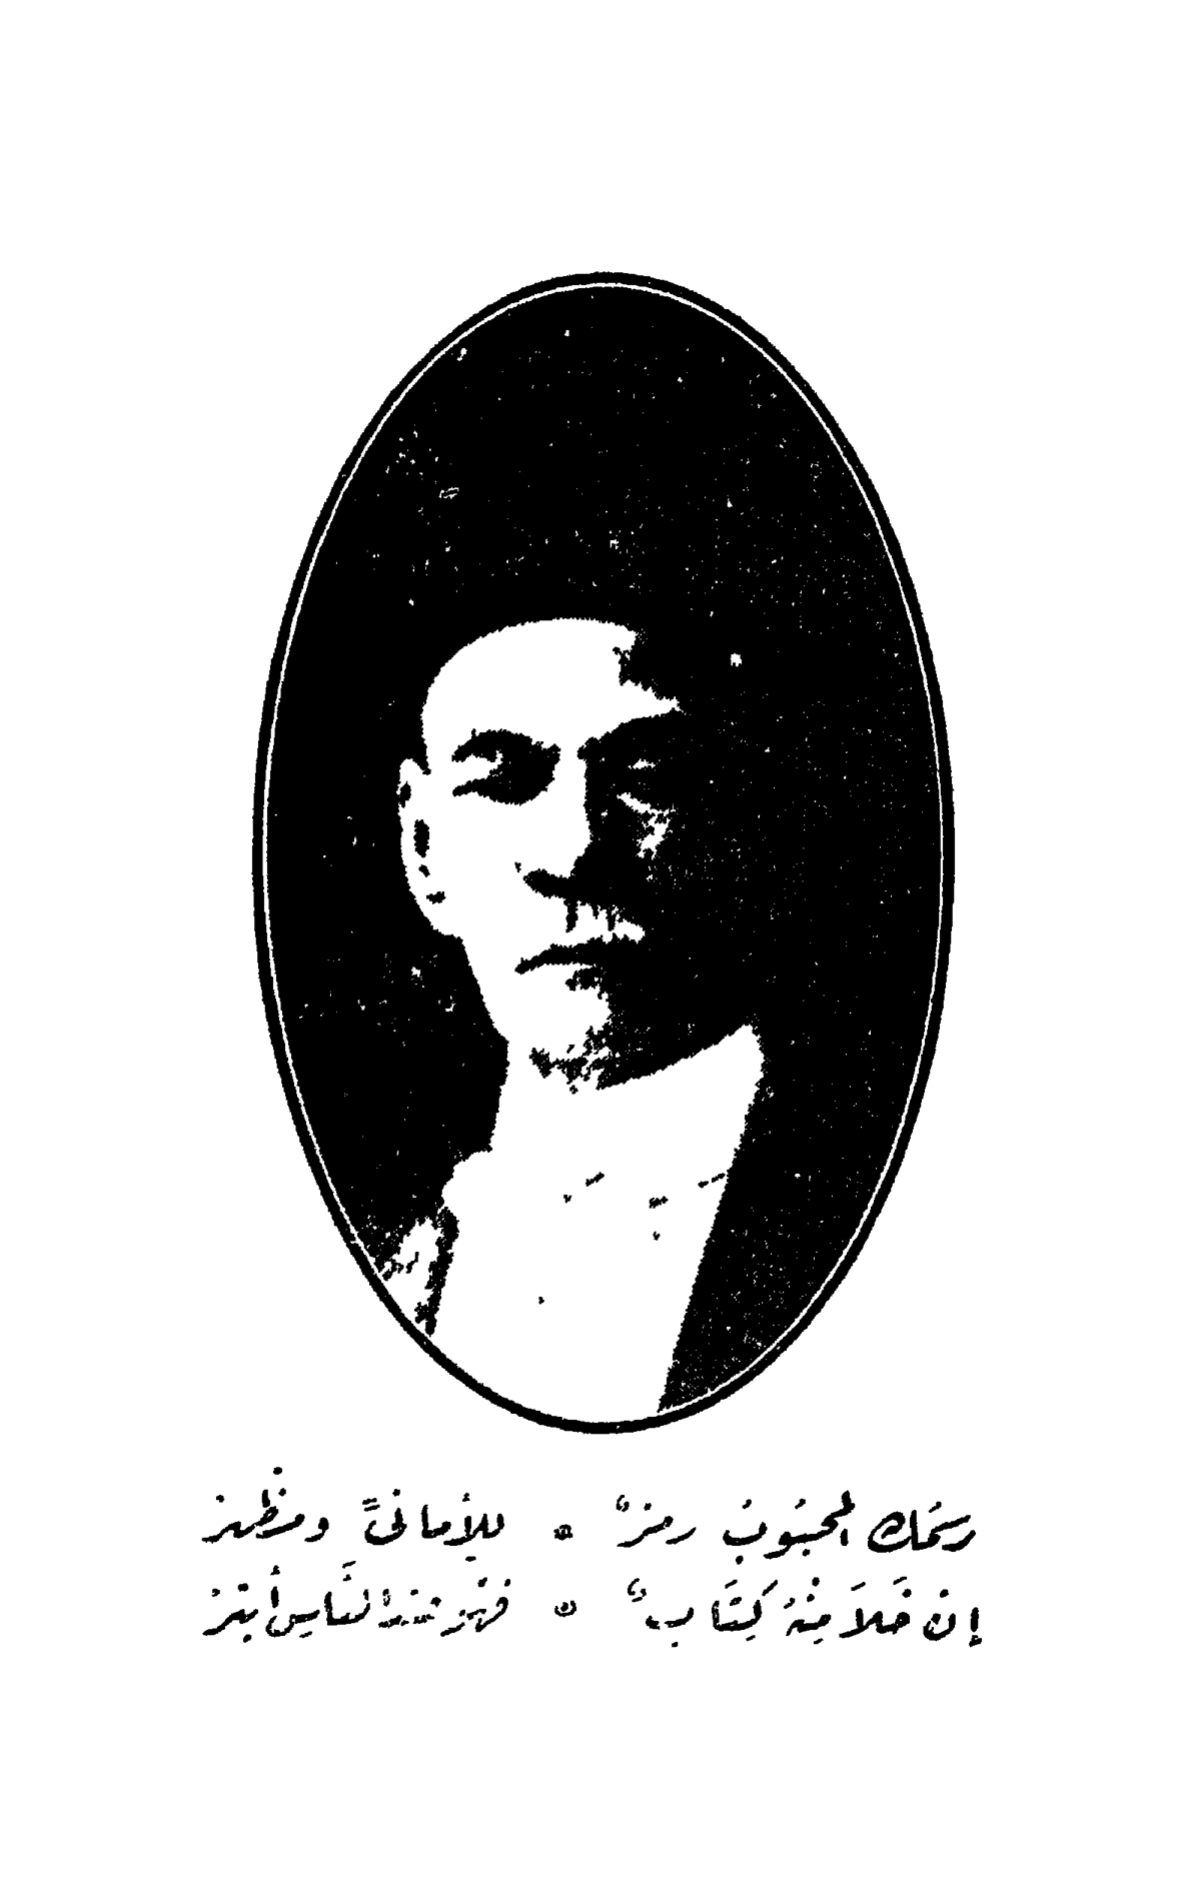 رسمُك المحبُوبُ رمزٌ * للأمانىِّ ومظْهرُ
إن خَلَا مِنْهُ كِتَابٌ * فهْو عند النَّاسِ أبترُ